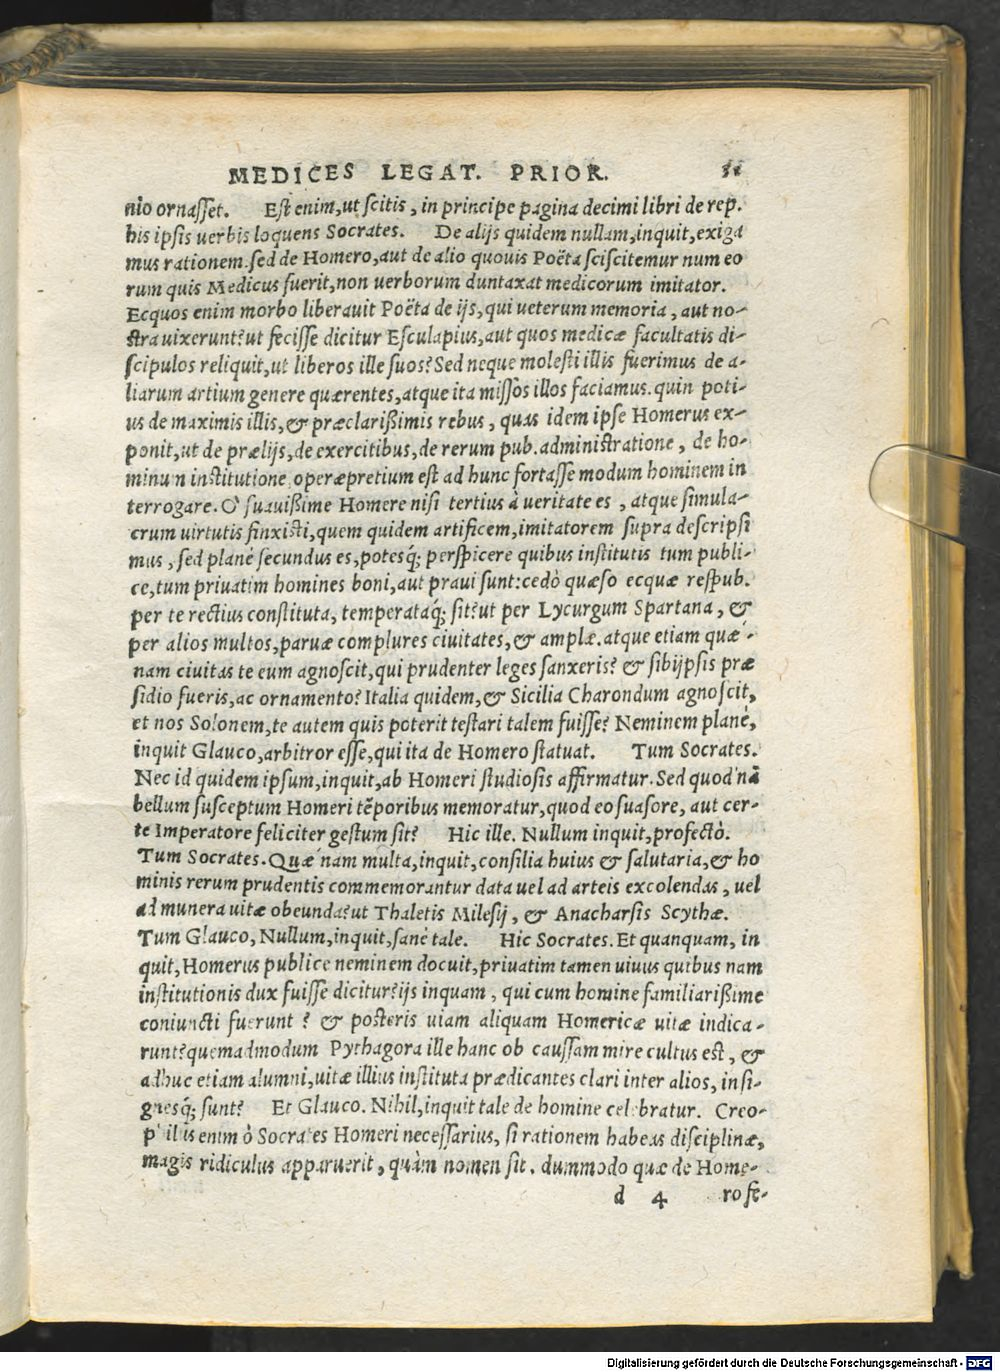 MEDICES LEGAT. PRIOR.
nio ornasset. Est enim, ut scitis, in principe pagina decimi libri de rep.
his ipsis uerbis loquens Socrates. De alijs quidem nullam, inquit, exiga
mus rationem. sed de Homero, aut de alio quouis Poëta sciscitemur num eo
rum quis Medicus fuerit, non uerborum duntaxat medicorum imitator.
Ecquos enim morbo liberauit Poëta de ijs, qui ueterum memoria, aut no-
stra uixerunt? ut fecisse dicitur Esculapius, aut quos medicæ facultatis di-
scipulos reliquit, ut liberos ille suos? Sed neque molesti illis fuerimus de a-
liarum artium genere quærentes, atque ita missos illos faciamus. quin poti-
us de maximis illis, & præclarißimis rebus, quas idem ipse Homerus ex-
ponit, ut de prælijs, de exercitibus, de rerum pub. administratione, de ho-
minum institutione operæpretium est ad hunc fortasse modum hominem in
terrogare. O' suauißime Homere nisi tertius à ueritate es, atque simula-
crum uirtutis finxisti, quem quidem artificem, imitatorem supra descripsi
mus, sed planè secundus es, potesq́; perspicere quibus institutis tum publi-
ce, tum priuatim homines boni, aut praui sunt: cedò quæso ecquæ respub.
per te rectius constituta, temperataq́; sit? ut per Lycurgum Spartana, &
per alios multos, paruæ complures ciuitates, & amplæ. atque etiam quæ-
nam ciuitas te eum agnoscit, qui prudenter leges sanxeris? & sibijpsis præ
sidio fueris, ac ornamento? Italia quidem, & Sicilia Charondum agnoscit,
et nos Solonem, te autem quis poterit testari talem fuisse? Neminem planè,
inquit Glauco, arbitror esse, qui ita de Homero statuat. Tum Socrates.
Nec id quidem ipsum, inquit, ab Homeri studiosis affirmatur. Sed quod nā
bellum susceptum Homeri tẽporibus memoratur, quod eo suasore, aut cer-
te Imperatore feliciter gestum sit? Hic ille. Nullum inquit, profectò.
Tum Socrates. Quæ nam multa, inquit, consilia huius & salutaria, & ho
minis rerum prudentis commemorantur data uel ad arteis excolendas, uel
ad munera uitæ obeunda? ut Thaletis Milesij, & Anacharsis Scythæ.
Tum Glauco, Nullum, inquit, sanè tale. Hic Socrates. Et quanquam, in
quit, Homerus publice neminem docuit, priuatim tamen uiuus quibus nam
institutionis dux fuisse dicitur? ijs inquam, qui cum homine familiarißime
coniuncti fuerunt? & posteris uiam aliquam Homericæ uitæ indica-
runt? quemadmodum Pythagora ille hanc ob caussam mire cultus est, &
adhuc etiam alumni, uitæ illius instituta prædicantes clari inter alios, insi-
gnesq́; sunt? Et Glauco. Nihil, inquit tale de homine celebratur. Creo-
enim ò Socrates Homeri necessarius, si rationem habeas disciplinæ,
magis ridiculus apparuerit, quàm nomen sit. dummodo quæ de Home-
d 4 ro fe-
Digitalisierung gefördert durch die Deutsche Forschungsgemeinschaft - DFG